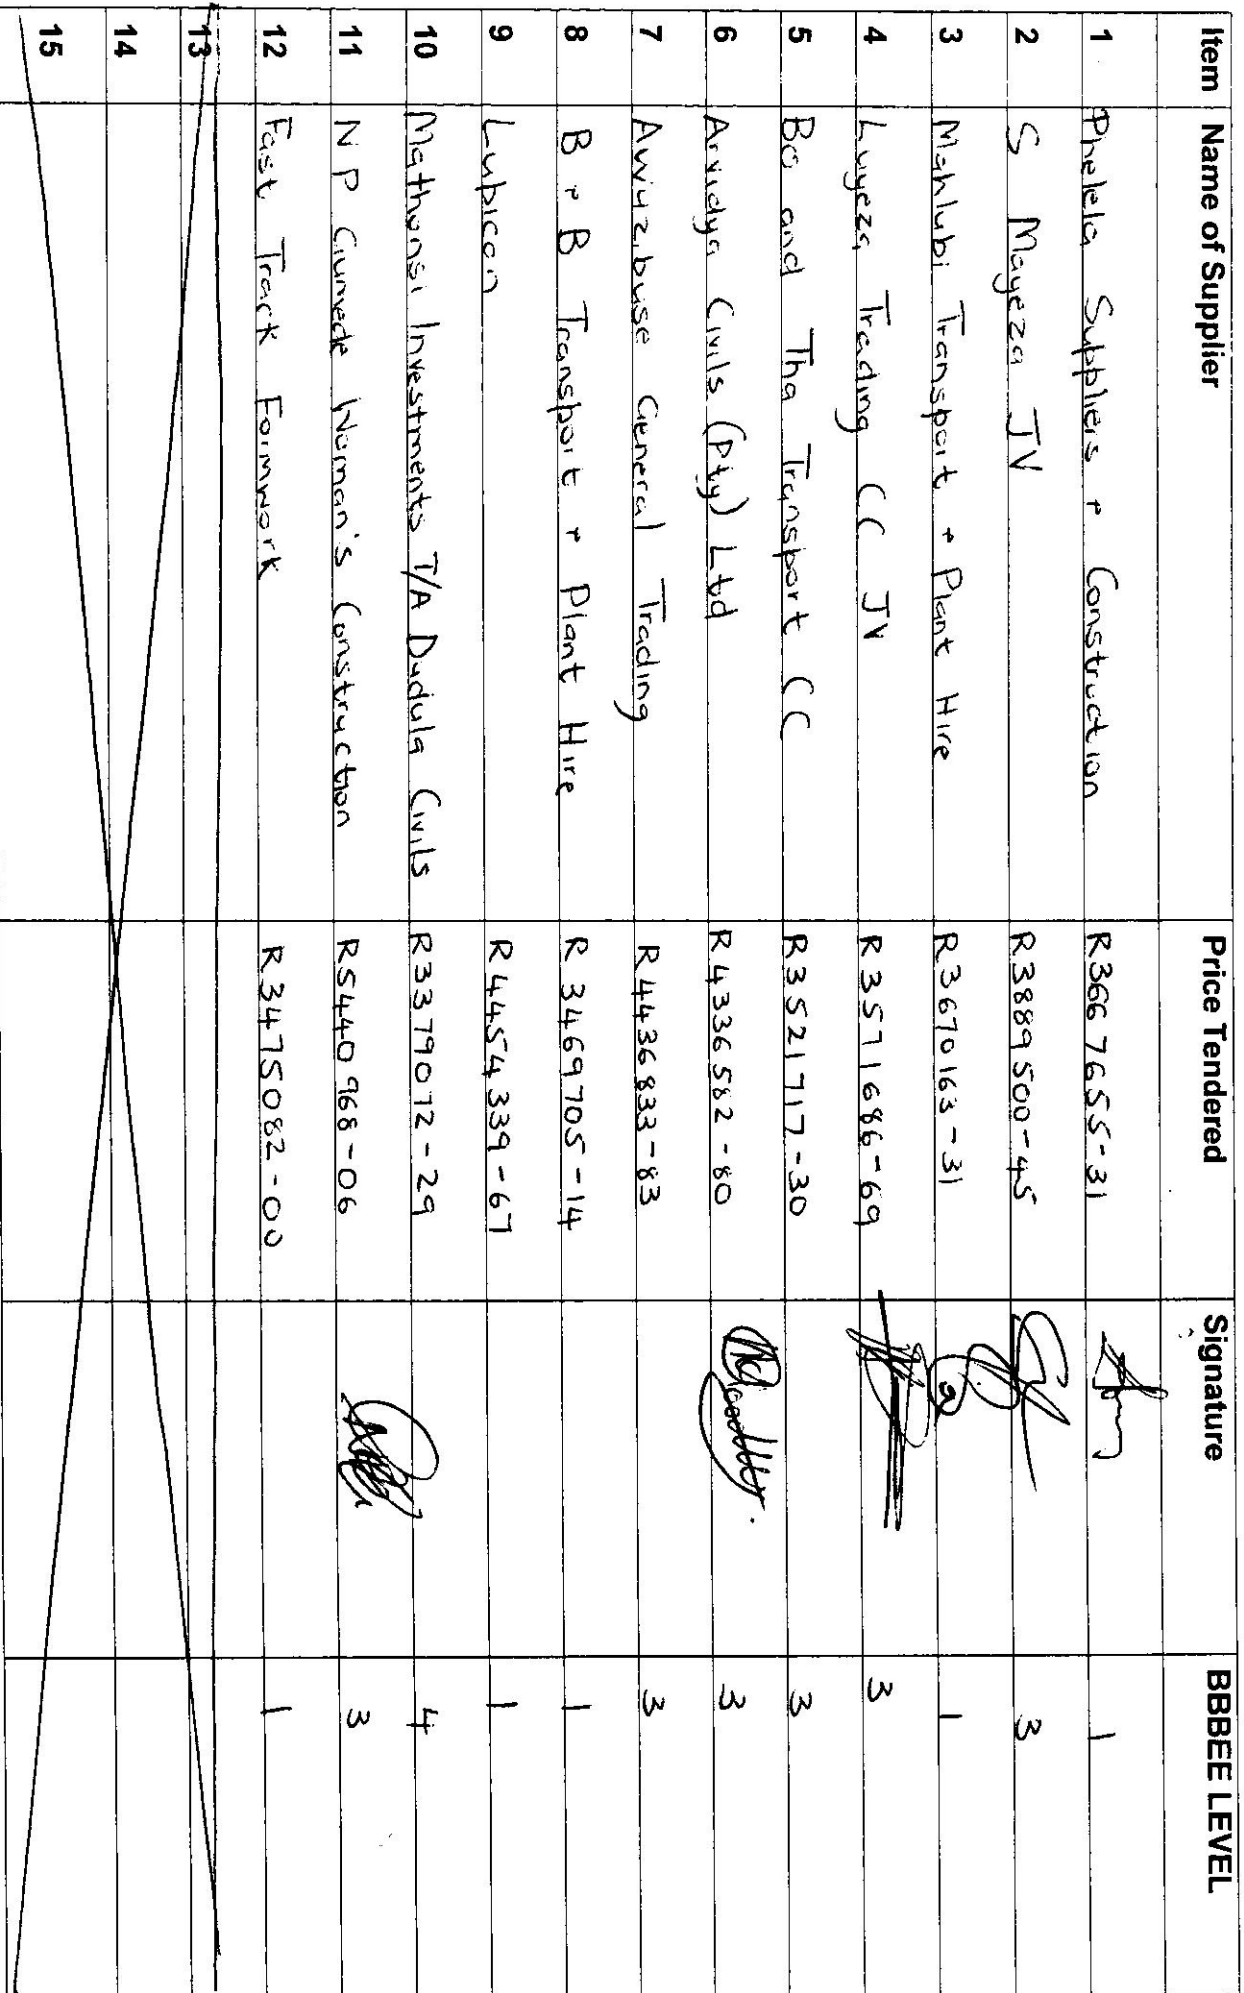 Item Name of Supplier Price Tendered Signature BBBEE LEVEL
1 Phelela Suppliers + Construction R3667655-31 1
2 S Mayeza JV R3889500-45 3
3 Mahlubi Transport + Plant Hire R3670163-31 1
4 Luyeza Trading CC JV R3571686-69 3
5 Bo and Tha Transport CC R3521717-30 3
6 Arvidya Civils (Pty) Ltd R4336582-80 3
7 General Trading R4436833-83 3
8 B + B Transport + Plant Hire R3469705-14 1
9 Lubicon R4454339-67 1
10 Mathonsi Investments T/A Dudula Civils R3379072-29 4
11 N P Gumede Woman's Construction R5440968-06 3
12 Fast Track Formwork R3475082-00 1
13
14
15